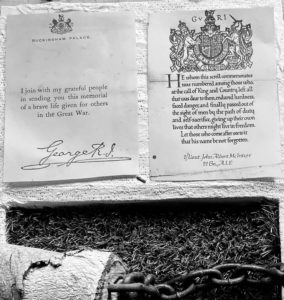 BUCKINGHAM PALACE.
I join with my grateful people
in sending you this memorial
of a brave life given for others
in the Great War.
George R.I.
G V R I
HE whom this scroll commemorates
was numbered among those who,
at the call of King and Country, left all
that was dear to them, endured hardness,
faced danger, and finally passed out of
the sight of men by the path of duty
and self-sacrifice, giving up their own
lives that others might live in freedom.
Let those who come after see to it
that his name be not forgotten.
2/Lieut. John Albert McIntyre
A.I.F.